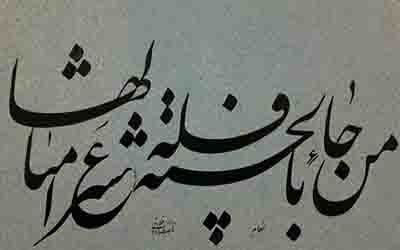 من جاء بالحسنة فله عشر امثالها
انعام